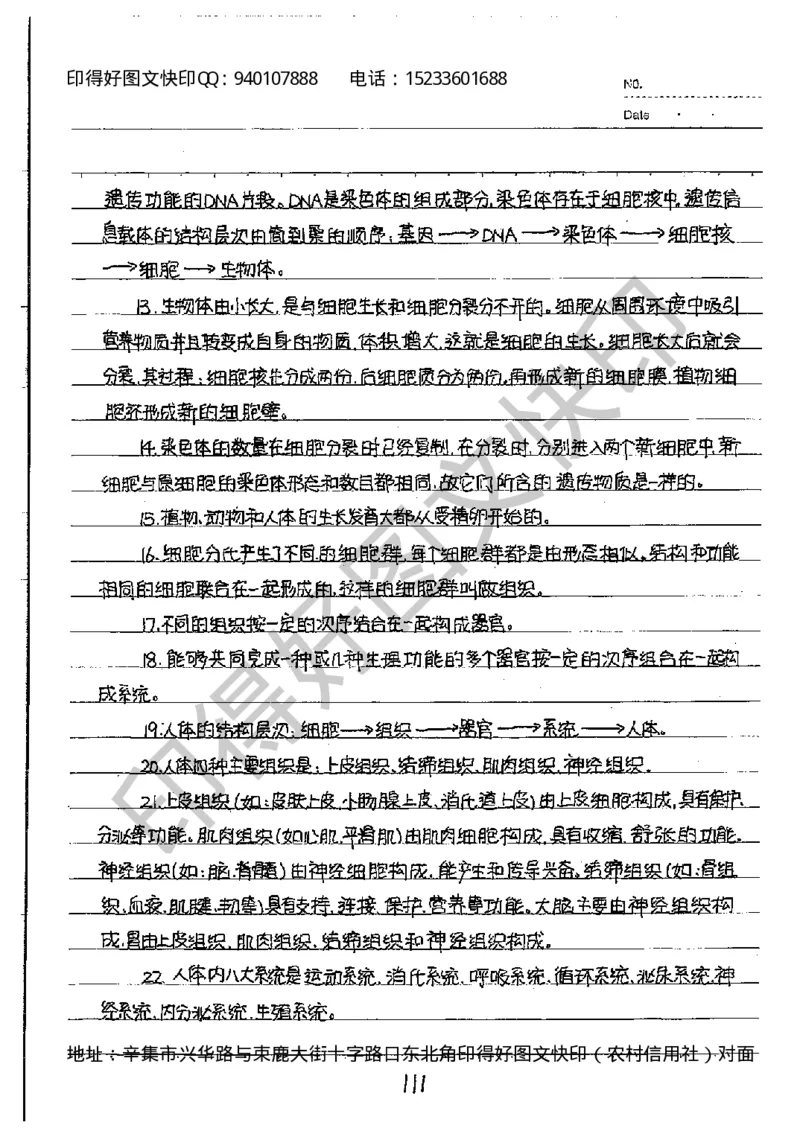 印得好图文快印QQ：940107888 电话：15233601688
NO.
Date · ·
遗传功能的DNA片段。DNA是染色体的组成部分,染色体存在于细胞核中。遗传信
息载体的结构层次由简到聚的顺序:基因→DNA→染色体→细胞核
→细胞→生物体。
13.生物体由小长大,是与细胞生长和细胞分裂分不开的。细胞从周围环境中吸引
营养物质并且转变成自身的物质,体积增大,这就是细胞的生长。细胞长大后就会
分裂,其过程:细胞核先分成两份,后细胞质分为两份,再形成新的细胞膜,植物细
胞还形成新的细胞壁。
14.染色体的数量在细胞分裂时已经复制,在分裂时,分别进入两个新细胞中,新
细胞与原细胞的染色体形态和数目都相同,故它们所含的遗传物质是一样的。
15.植物、动物和人体的生长发育大都从受精卵开始的。
16.细胞分化产生了不同的细胞群,每个细胞群都是由形态相似。结构和功能
相同的细胞联合在一起形成的,这样的细胞群叫做组织。
17.不同的组织按一定的次序结合在一起构成器官。
18.能够共同完成一种或几种生理功能的多个器官按一定的次序组合在一起构
成系统。
19.人体的结构层次:细胞→组织→器官→系统→人体。
20.人体四种主要组织是:上皮组织、结缔组织、肌肉组织、神经组织.
21.上皮组织(如:皮肤上皮、小肠腺上皮、消化道上皮)由上皮细胞构成,具有保护、
分泌等功能。肌肉组织(如心肌、平滑肌)由肌肉细胞构成,具有收缩、舒张的功能。
神经组织(如:脑、脊髓)由神经细胞构成,能产生和传导兴奋。结缔组织(如:骨组
织、血液、肌腱、韧带)具有支持、连接、保护、营养等功能。大脑主要由神经组织构
成,胃由上皮组织、肌肉组织、结缔组织和神经组织构成。
22.人体内八大系统是运动系统、消化系统、呼吸系统、循环系统、泌尿系统、神
经系统、内分泌系统、生殖系统。
地址：辛集市兴华路与束鹿大街十字路口东北角印得好图文快印（农村信用社）对面
111
印得好图文快印